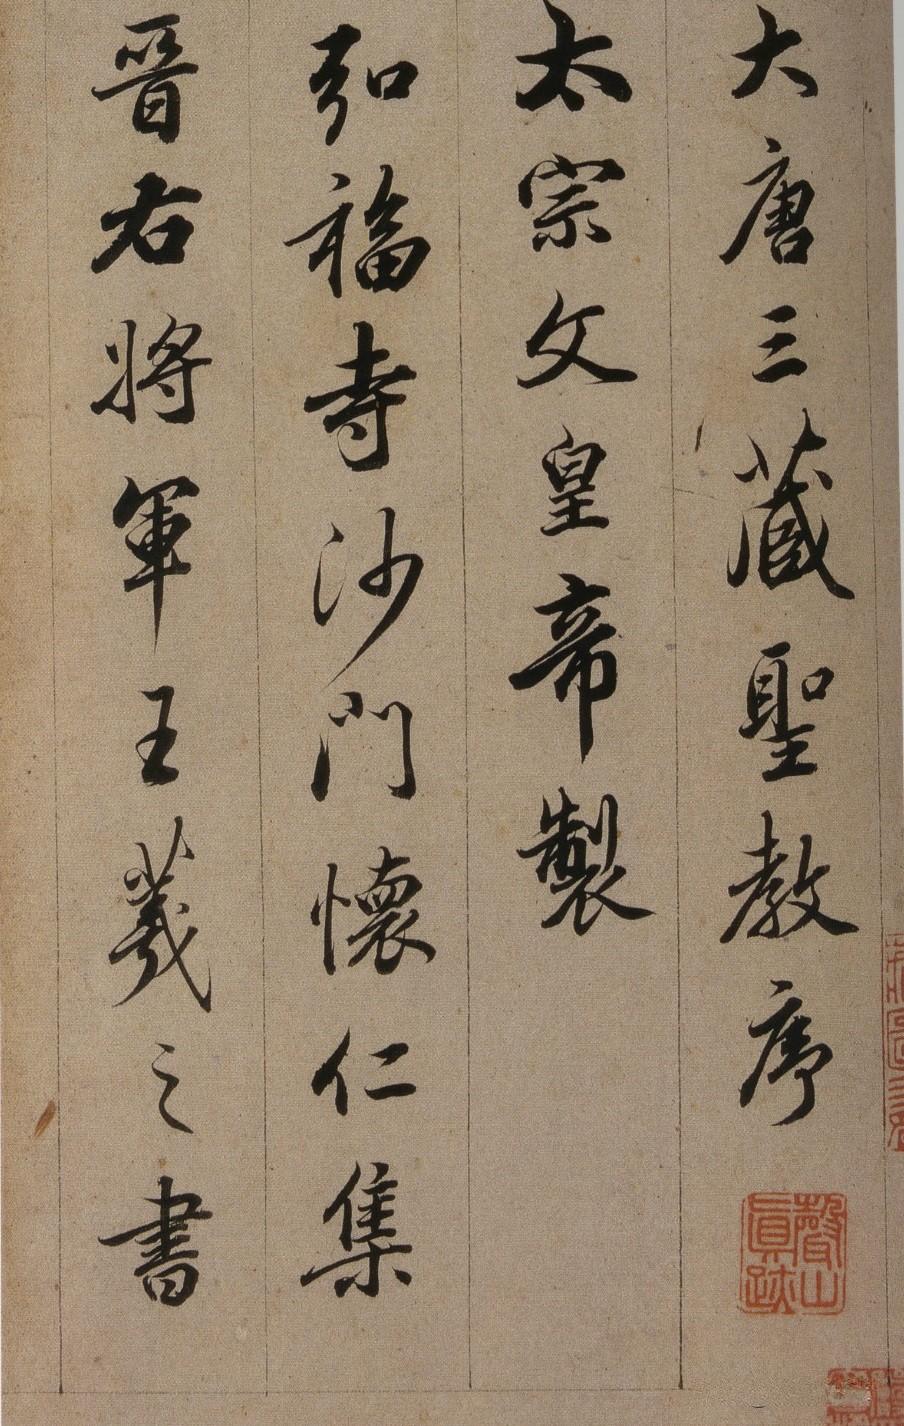 大唐三藏聖教序
太宗文皇帝製
弘福寺沙門懷仁集
晉右將軍王羲之書
磬山真跡